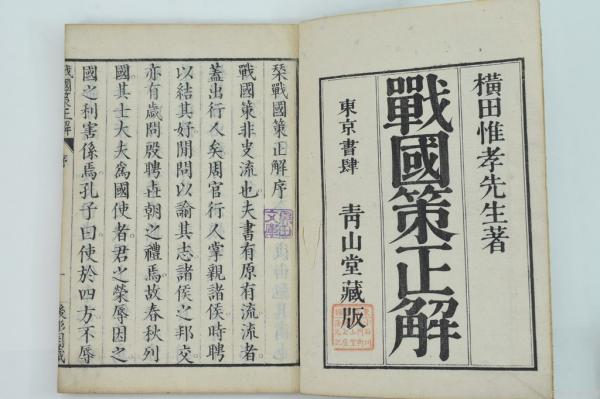 橫田惟孝先生著
戰國策正解
東京書肆 靑山堂藏版
琹戰國策正解序
戰國策非史流也夫書有原有流流者
蓋出行人矣周官行人掌親諸侯時聘
以結其好閒問以諭其志諸侯之邦交
亦有歲問殷聘世朝之禮焉故春秋列
國其士大夫爲國使者君之榮辱因之
國之利害係焉孔子曰使於四方不辱
戰國策正解 序 一